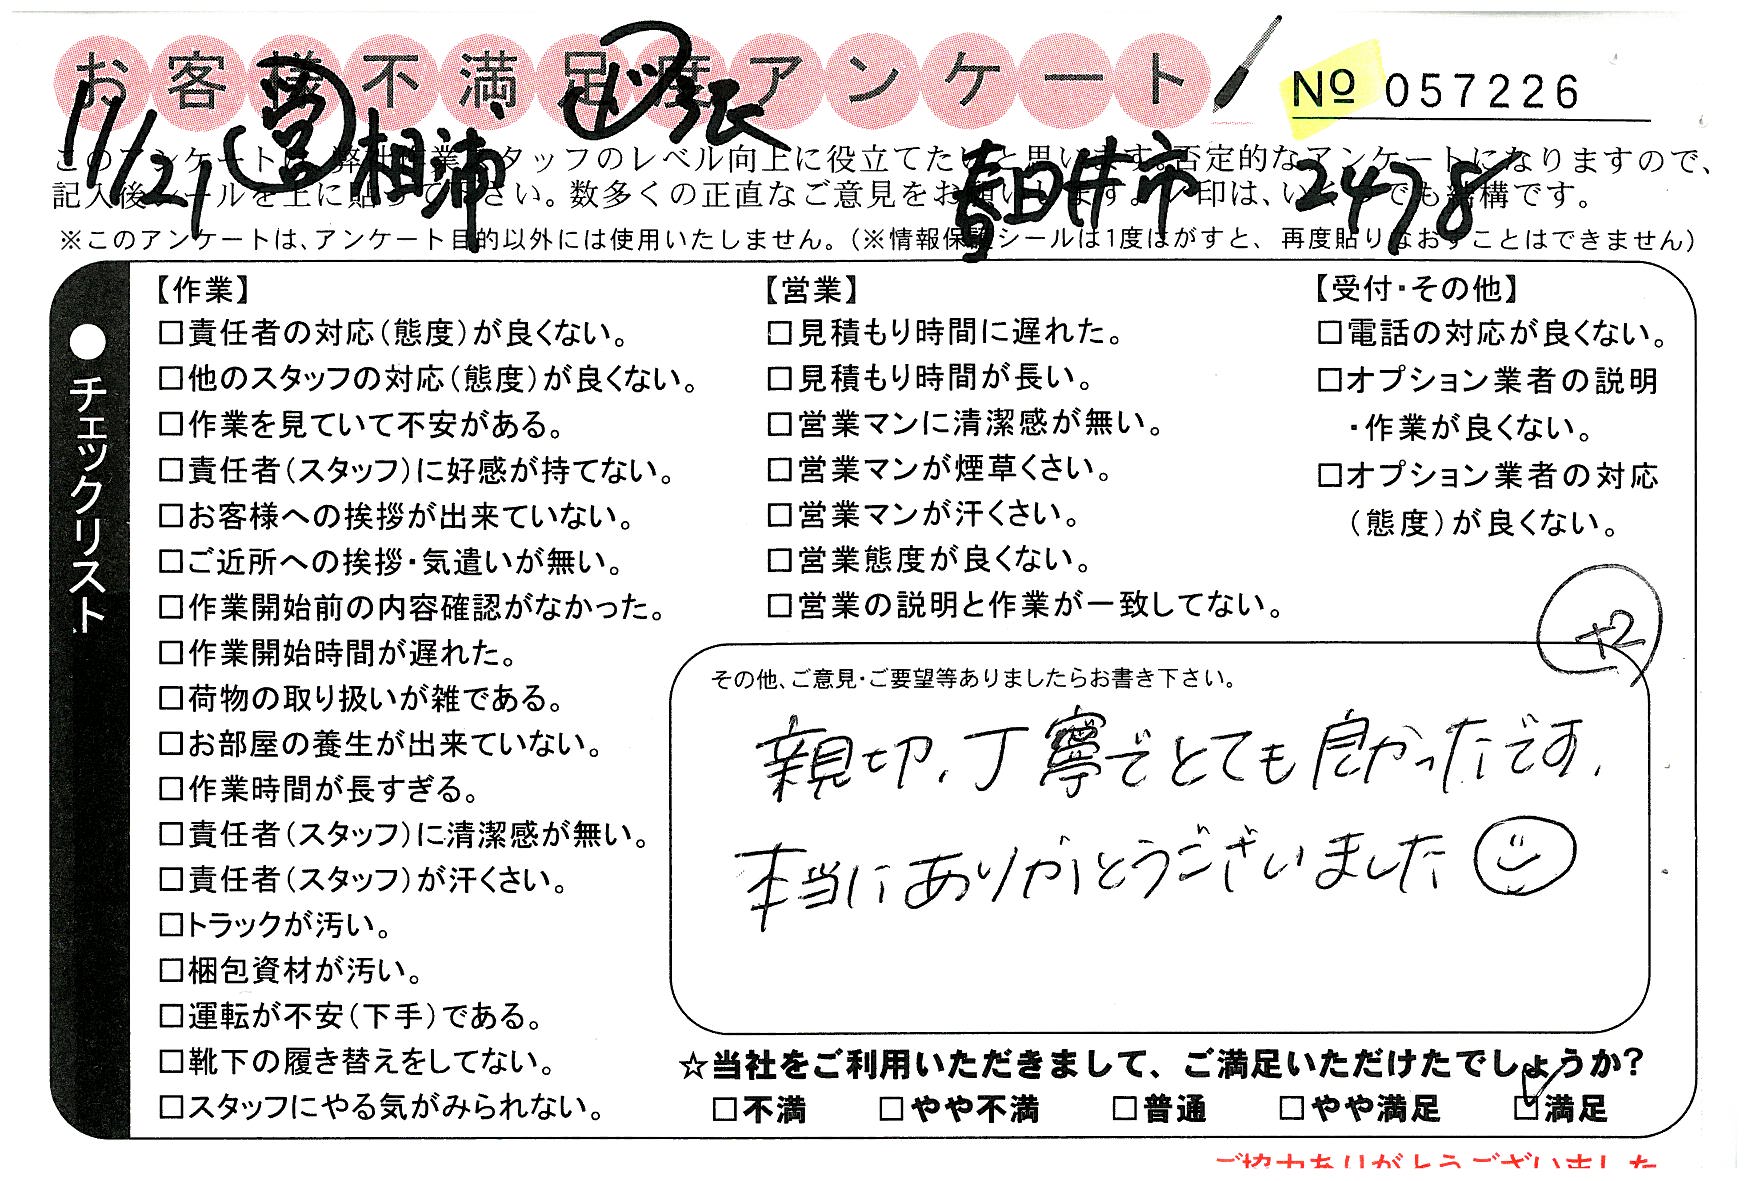 お客様不満足度アンケート
№ 057226
11/21 営 相浦 張 春日井市 2478
このアンケートは、弊社作業スタッフのレベル向上に役立てたいと思います。否定的なアンケートになりますので、
記入後シールを上に貼って下さい。数多くの正直なご意見をお願いします。レ印は、いくつでも結構です。
※このアンケートは、アンケート目的以外には使用いたしません。(※情報保護シールは1度はがすと、再度貼りなおすことはできません)
●チェックリスト
【作業】
□責任者の対応(態度)が良くない。
□他のスタッフの対応(態度)が良くない。
□作業を見ていて不安がある。
□責任者(スタッフ)に好感が持てない。
□お客様への挨拶が出来ていない。
□ご近所への挨拶・気遣いが無い。
□作業開始前の内容確認がなかった。
□作業開始時間が遅れた。
□荷物の取り扱いが雑である。
□お部屋の養生が出来ていない。
□作業時間が長すぎる。
□責任者(スタッフ)に清潔感が無い。
□責任者(スタッフ)が汗くさい。
□トラックが汚い。
□梱包資材が汚い。
□運転が不安(下手)である。
□靴下の履き替えをしてない。
□スタッフにやる気がみられない。
【営業】
□見積もり時間に遅れた。
□見積もり時間が長い。
□営業マンに清潔感が無い。
□営業マンが煙草くさい。
□営業マンが汗くさい。
□営業態度が良くない。
□営業の説明と作業が一致してない。
【受付・その他】
□電話の対応が良くない。
□オプション業者の説明
・作業が良くない。
□オプション業者の対応
(態度)が良くない。
+2
その他、ご意見・ご要望等ありましたらお書き下さい。
親切、丁寧でとても良かったです。
本当にありがとうございました
☆当社をご利用いただきまして、ご満足いただけたでしょうか?
□不満 □やや不満 □普通 □やや満足 ☑満足
ご協力ありがとうございました